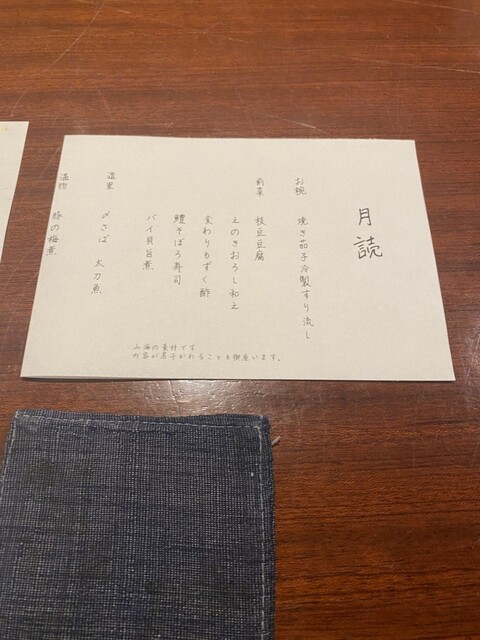 月読
お椀 焼き茄子冷製すり流し
前菜 枝豆豆腐
えのきおろし和え
変わりもずく酢
鱧そぼろ寿司
バイ貝旨煮
〆さば 太刀魚
温物 豚の梅煮
山海の素材です
内容が若干かわることも御座います。